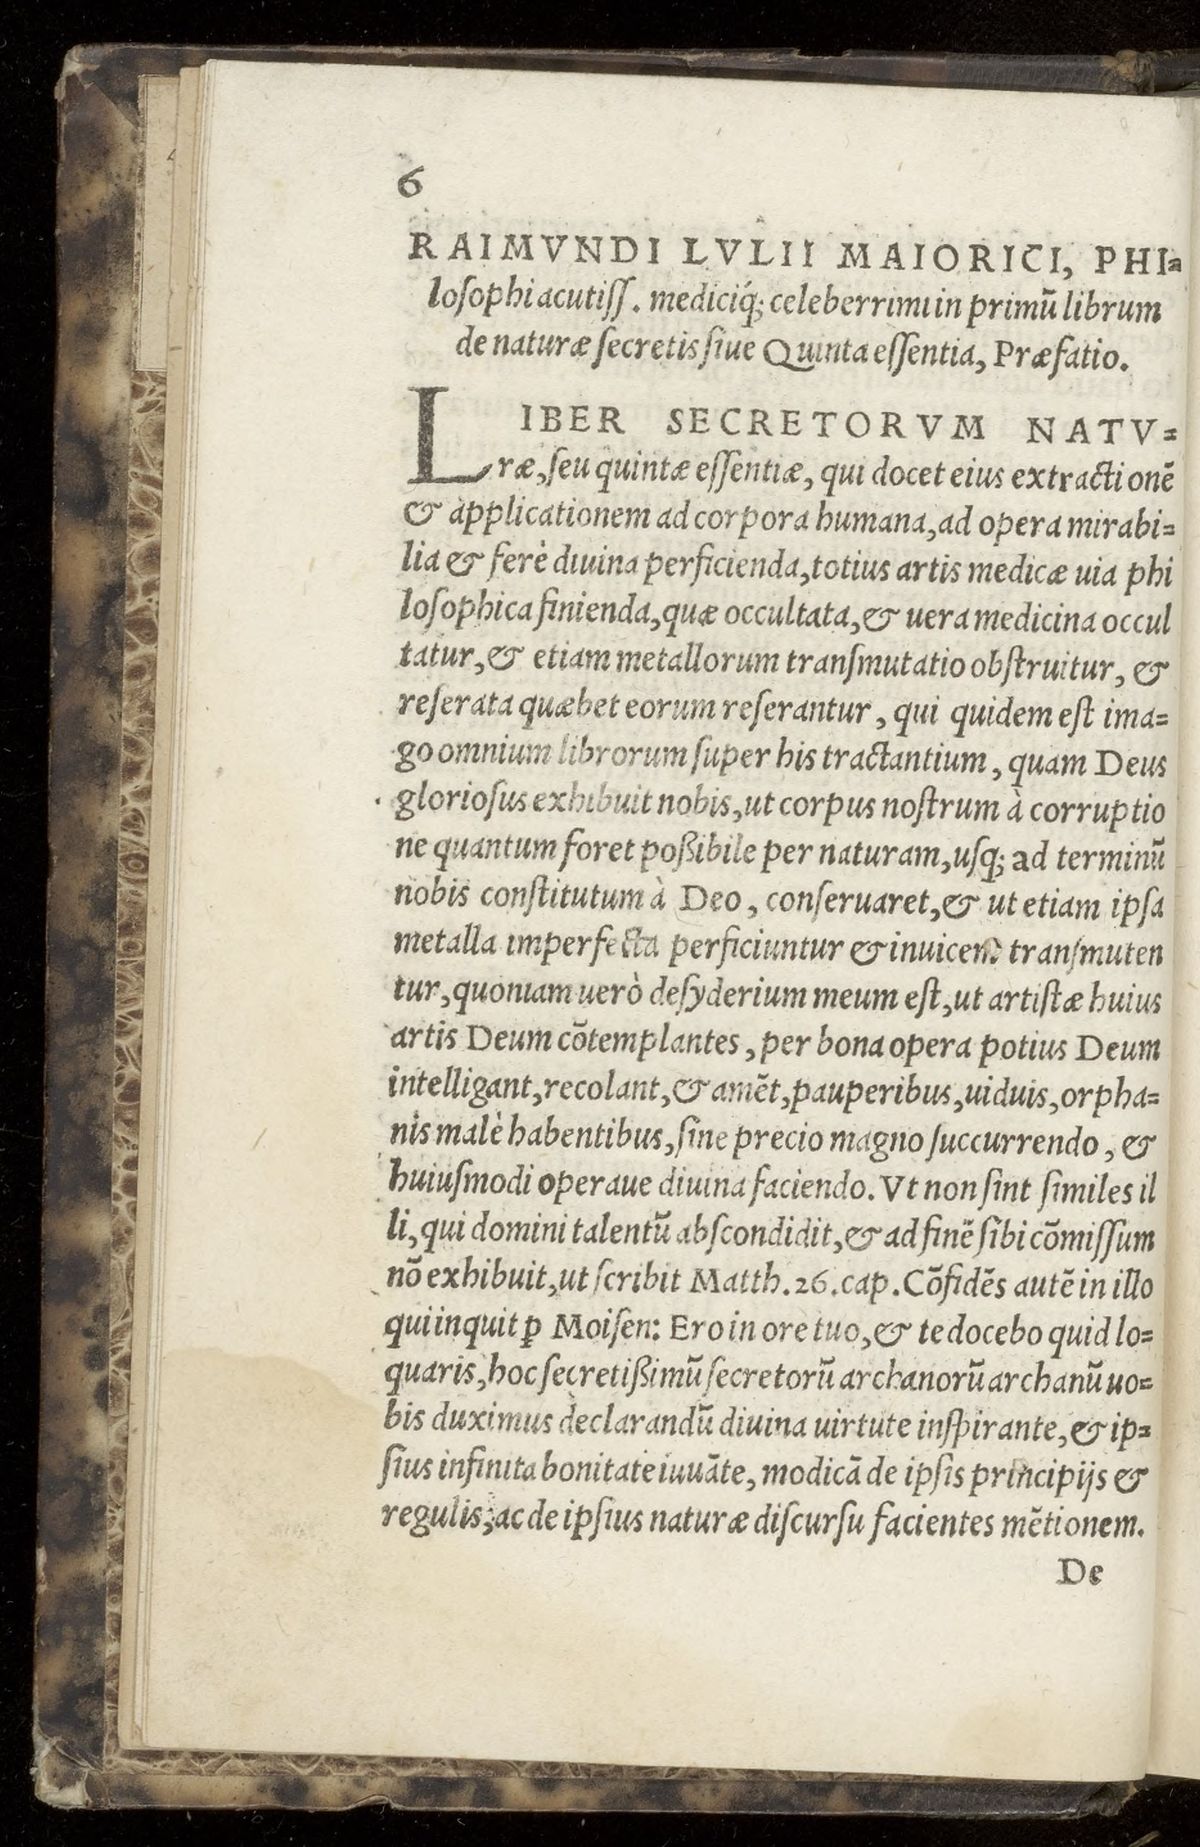 6
RAIMVNDI LVLII MAIORICI, PHI=
losophi acutiss. mediciq́; celeberrimi in primū librum
de naturæ secretis siue Quinta essentia, Præfatio.
LIBER SECRETORVM NATV=
ræ, seu quintæ essentiæ, qui docet eius extractionē
& applicationem ad corpora humana, ad opera mirabi=
lia & ferè diuina perficienda, totius artis medicæ uia phi
losophica finienda, quæ occultata, & uera medicina occul
tatur, & etiam metallorum transmutatio obstruitur, &
reserata quæbet eorum reserantur, qui quidem est ima=
go omnium librorum super his tractantium, quam Deus
gloriosus exhibuit nobis, ut corpus nostrum à corruptio
ne quantum foret poßibile per naturam, usq; ad terminū
nobis constitutum à Deo, conseruaret, & ut etiam ipsa
metalla imperfecta perficiuntur & inuicem transmuten
tur, quoniam uerò desyderium meum est, ut artistæ huius
artis Deum cōtemplantes, per bona opera potius Deum
intelligant, recolant, & amēt, pauperibus, uiduis, orpha=
nis malè habentibus, sine precio magno succurrendo, &
huiusmodi operaue diuina faciendo. Vt non sint similes il
li, qui domini talentū abscondidit, & ad finē sibi cōmissum
nō exhibuit, ut scribit Matth. 26. cap. Cōfidēs autē in illo
qui inquit ꝑ Moisen: Ero in ore tuo, & te docebo quid lo=
quaris, hoc secretißimū secretorū archanorū archanū uo=
bis duximus declarandū diuina uirtute inspirante, & ip=
sius infinita bonitate iuuāte, modicā de ipsis principijs &
regulis, ac de ipsius naturæ discursu facientes mētionem.
De